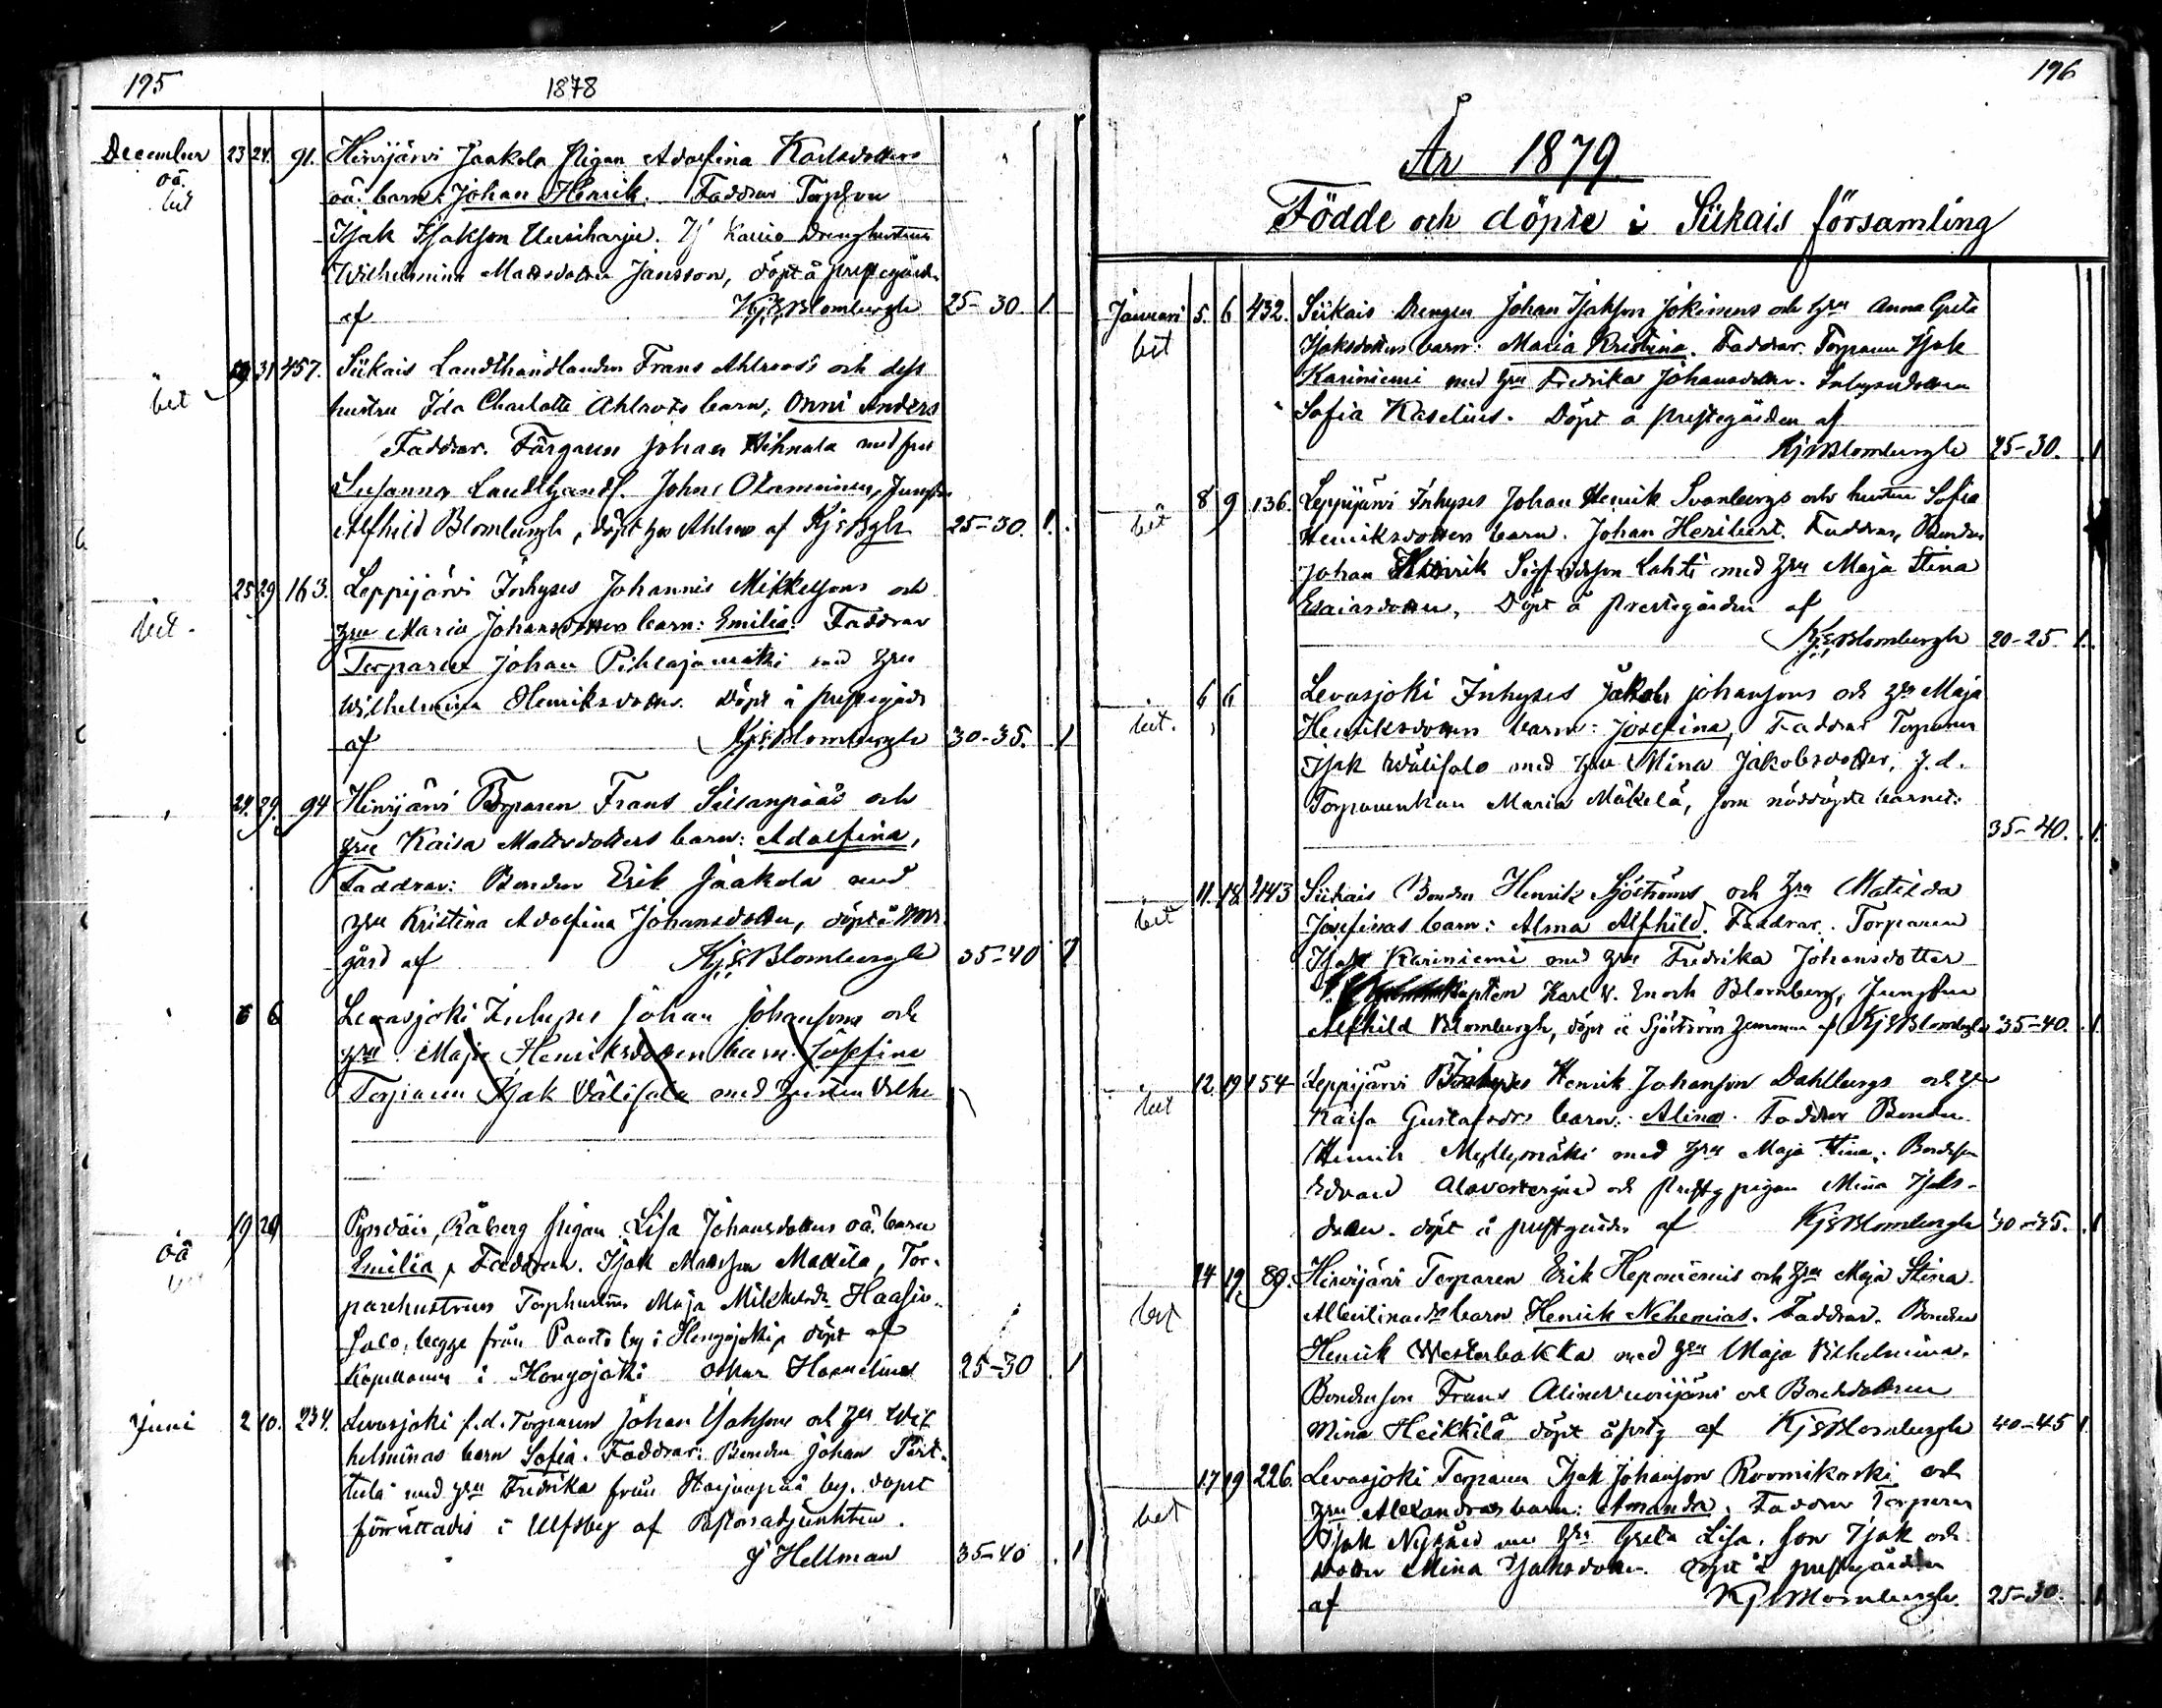 195
1878
December 23 24. 91. Hirvijärvi Jaakola Pigan Adolfina Karlsdotters
oä. oä. barn: Johan Henrik. Faddrar Torpson
bet Isak Isakson Uusiharju. Drenghustrun
Wilhelmina Mattsdotter Jansson, döpt å prestegård.
af KjEBlombergh 25-30 1
bet 31 457. Siikais Landthandlanden Frans Ahlroos's och dess
hustru Ida Charlotta Ahlroos barn, Onni Anders
Faddrar. Färgaren Johan Hihnala med fru
Susanna Landthandl. John Otamminen, Jungfru
Alfhild Blombergh, döpt hos Ahlroos af KjEBgh 25-30. 1.
bet. 25 29 163. Leppijärvi Inhyses Johannis Mikkelsons och
hru Maria Johansdotters barn: Emilia. Faddrar
Torparen Johan Pihlajamäki med hru
Wilhelmina Henriksdotter. Döpt å prestegård
af KjEBlombergh 30-35. 1
24. 29. 94 Hirvijärvi Torparen Frans Sillanpääs och
hru Kaisa Mattsdotters barn: Adolfina,
Faddrar: Bonden Erik Jaakola med
hru Kristina Adolfina Johansdotter, döpt å
gård af KjEBlombergh 35-40 1
6 6 Levasjoki Inhyses Johan Johansons och
hru Maja Henriksdotters barn: Josefina
Torparen Isak Välisalo med hustru
19 29 Pyndäis, Råberg pigan Lisa Johansdotters oä. barn
oä Emilia, Faddrar. Isak Mattson Mattila, Tor-
parehustrun Torphustrun Maja Mikkelsdr Haasio-
salo, begge från by i Hongojoki, döpt af
Kapellanen i Hongojoki Oskar 25-30 1
Juni 2 10. 234. Levasjoki f.d. Torparen Johan Isaksons och hru Wil-
helminas barn Sofia. Faddrar: Bonden Johan
med hru Fredrika från Harjunpää by. döpt
förrättades i Ulfsby af Pastorsadjunkten.
J Hellman 35-40 . 1
196
År 1879.
Födde och döpte i Siikais församling
Januari 5. 6 432. Siikais Drengen Johan Isakson Jokinens och hru Anna Greta
bet Isaksdotters barn: Maria Kristina. Faddrar. Torparen Isak
Kariniemi med hru Fredrika Johansdotter.
Sofia Kaselius. Döpt å prestegården af
KjEBlombergh 25-30. 1
bet 8 9 136. Leppijärvi Inhyses Johan Henrik Svanbergs och hustru Sofia
Henriksdotters barn. Johan Heribert. Faddrar, Bonden
Johan Henrik Sigfridsson Lahti med hru Maja Stina
Esaiasdotter, Döpt å prestegården af
KjEBlombergh 20-25 1.
6 6 Levasjoki Inhyses Jakob Johansons och hru Maja
bet. Henriksdotters barn: Josefina, Faddrar Torparen
Isak Välisalo med hru Mina Jakobsdotter, f.d.
Torparenkan Maria Mäkelä, som nöddöpte barnet.
35-40. 1.
11. 18. 443 Siikais Bonden Henrik Sjöströms och hru Matilda
bet Josefinas barn: Alma Alfhild. Faddrar. Torparen
Isak Kariniemi med hru Fredrika Johansdotter
Kapten Karl V. Enoch Blomberg, Jungfru
Alfhild Blombergh, döpt i Sjöströms hemman af KjEBlombergh 35-40. 1.
12 19 154 Leppijärvi Inhyses Henrik Johanson Dahlbergs och hru
bet Kaisa Gustafsdrs barn: Alina. Faddrar Bonden
Henrik Myllymäki med hru Maja Stina. Bondeson
Edvard Alavestergård och prestg pigan Mina Isaks-
dotter. döpt å prestgården af KjEBlombergh 30-35. 1
14 19. 89. Hirvijärvi Torparen Erik Heponiemis och hru Maja Stina
bet Albertinas barn Henrik Nehemias. Faddrar. Bonden
Henrik Westerbakka med hru Maja Vilhelmina.
Bondeson Frans och Bondedottren
Mina Heikkilä döpt å prstg af KjEBlombergh 40-45 1.
17 19 226. Levasjoki Torparen Isak Johanson Roomikoski och
bet hru Alexandras barn: Amanda. Faddrar Torparen
Isak Nygård med hru Greta Lisa. son Isak och
dotter Mina Isaksdotter. döpt å prestegården
af KjEBlombergh. 25-30. 1